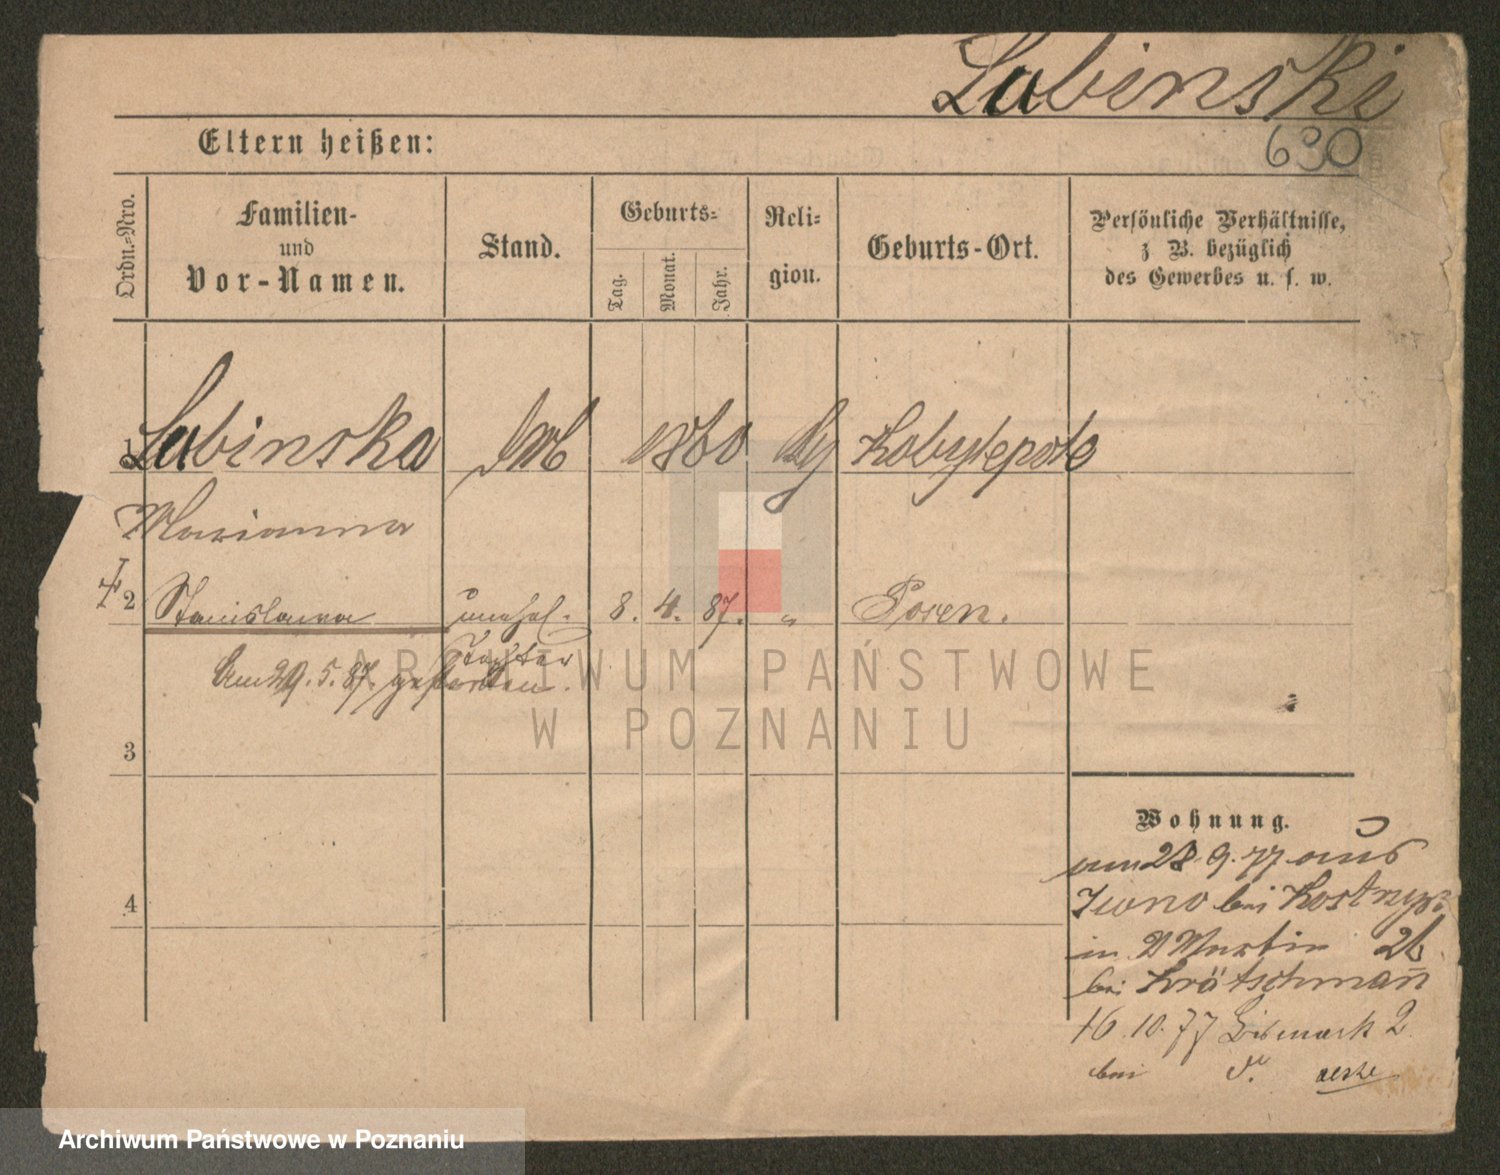 Lubinski
630
Eltern heißen:
Ordn.=Nro.
Familien-
und
Vor-Namen.
Stand.
Geburts=
Tag.
Monat.
Jahr.
Reli=
gion.
Geburts-Ort.
Persönliche Verhältnisse,
z B. bezüglich
des Gewerbes u. s. w.
1 Lubinska 1860 Kobylepole
Marianna
2 Stanislawa unehel. 8. 4. 87. " Posen.
Tochter
Am 29. 5. 87 gestorben.
3
4
Wohnung.
am 28. 9. 77 aus
Iwno bei Kostrzyn
in St Martin 26
bei Krätschmañ
16. 10. 77 Bismark 2
bei
ARCHIWUM PAŃSTWOWE
W POZNANIU
Archiwum Państwowe w Poznaniu